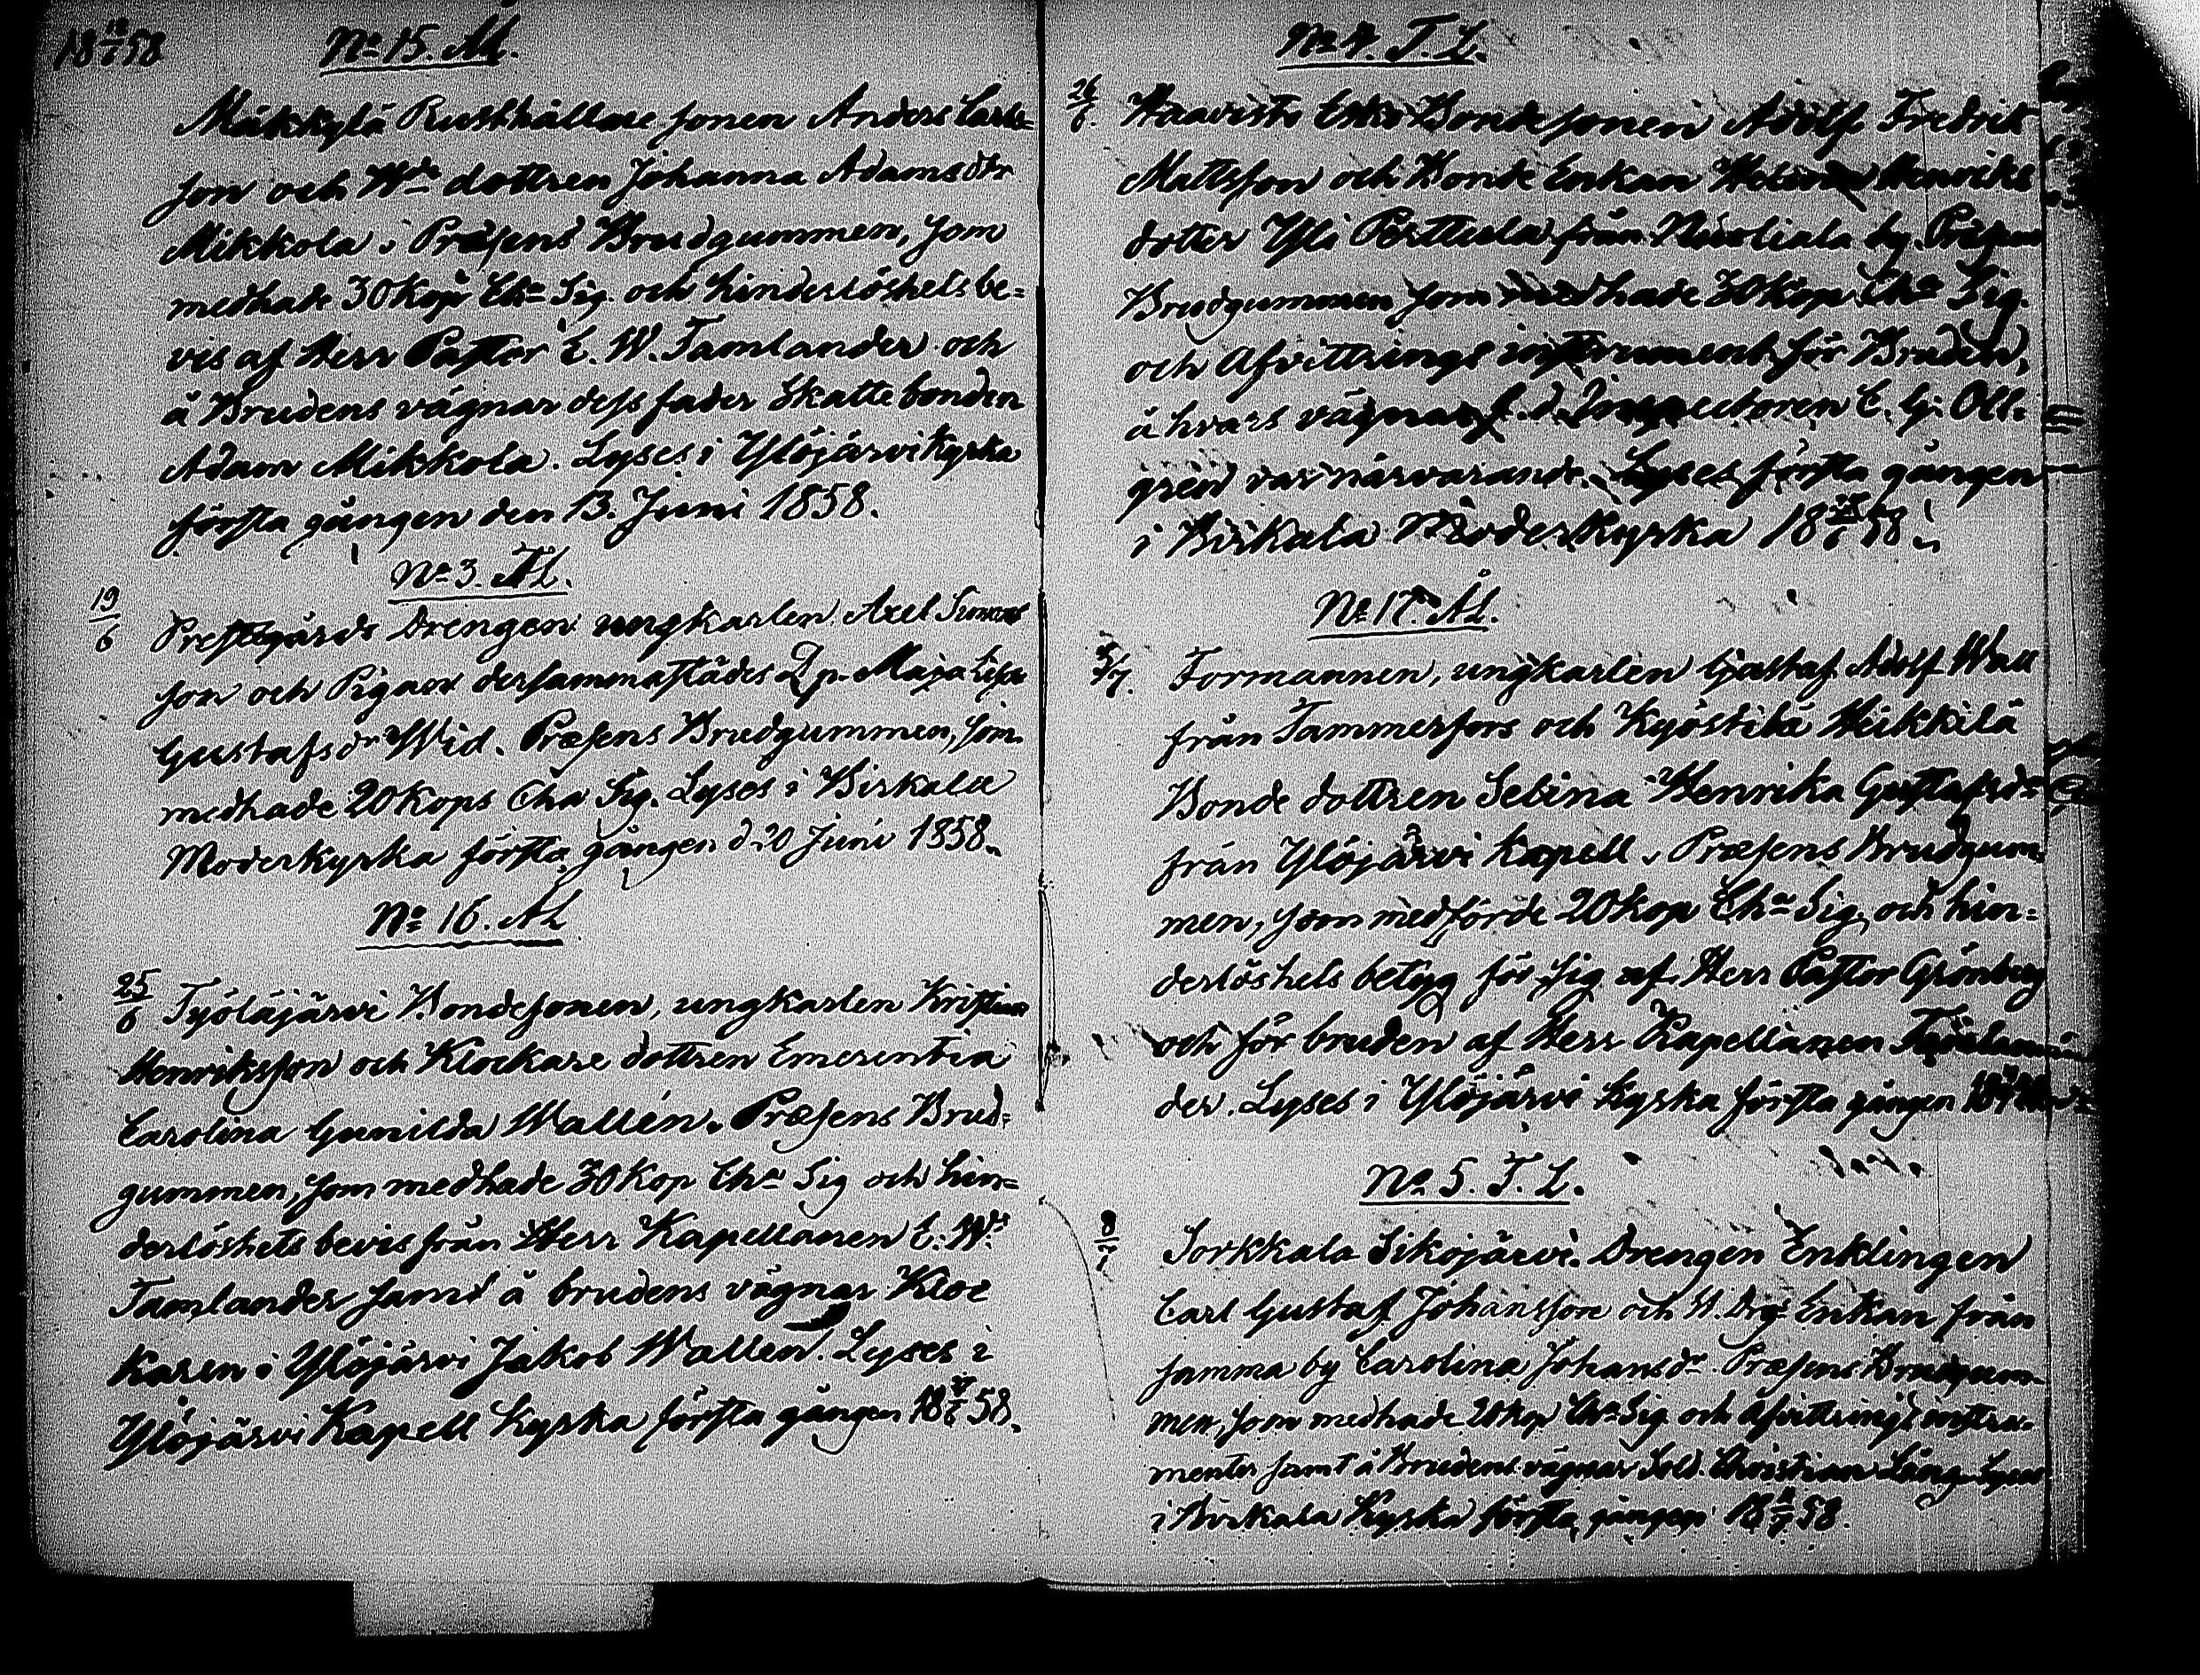 18 12/6 58
No 15. Äl.
Mäkkylä Rusthållare sonen Anders Carls=
son och Wde dottren Johanna Adamsdtr
Mikkola, Præsens Brudgummen, som
medhade 30 Kop Cha Sig. och hinderlöshets be=
vis af Herr Pastor E. W. Tamlander och
å Brudens vägnar dess fader Skattebonden
Adam Mikkola. Lyses i Ylöjärvi kyrka
första gången den 13. Juni 1858.
No 3. Äl.
19/6
Prestgårds Drengen ungkarlen Axel
son och Pigan dersammastädes Qp. Maja Lisa
Gustafsdr Wid. Præsens Brudgummen, som
medhade 20 Kops Cha Sig. Lyses i Birkala
Moderkyrka första gången d 20 Juni 1858.
No 16. Äl
25/6
Työläjärvi Bondesonen, ungkarlen Kristian
Henriksson och Klockare dottren Emerentia
Carolina Gunilda Wallén. Præsens Brud=
gummen, som medhade 30 Kop Cha Sig och hin=
derlöshets bevis från Herr Kapellanen E. W.
Tamlander samt å brudens vägnar Kloc
karen i Ylöjärvi Jakob Wallén. Lyses i
Ylöjärvi Kapell Kyrka första gången 18 27/6 58.
No 4. T. L.
26/6.
Haavisto Bondesonen Adolf Fredrik
Mattsson och Bonde Enkan Henriks
dotter Yli Perttula från Nuoliala by. Præsens
Brudgummen som medhade 30 Kop Cha Sig.
och Afvittrings instrument för Bruden,
å hvars vägnar f. d. Inspectoren C. G. Oll=
gren var närvarande. Lyses första gången
i Birkala Moderkyrka 18 27/6 58.
No 17. Äl.
3/7.
Formannen, ungkarlen Gustaf Adolf Wall
från Tammerfors och Kyöstilä Heikkilä
Bonde dottren Selina Henrika Gustafsdr
från Ylöjärvi Kapell. Præsens Brudgum=
men, som medförde 20 Kop Cha Sig. och hin=
derlöshets betyg för sig af Herr Pastor Grönberg
och för bruden af Herr Kapellanen
der. Lyses i Ylöjärvi Kyrka första gången
No 5. T. L.
8/7
Sorkkala Sikojärvi Drengen Enklingen
Carl Gustaf Johansson och H. Drgs Enkan från
samma by Carolina Johansdr. Præsens Brudgum=
men, som medhade 20 Kop Cha Sig och Afvittrings instru=
menter samt å Brudens vägnar Sold. Christian Lång. Lyses
i Birkala Kyrka första gången 18 58.